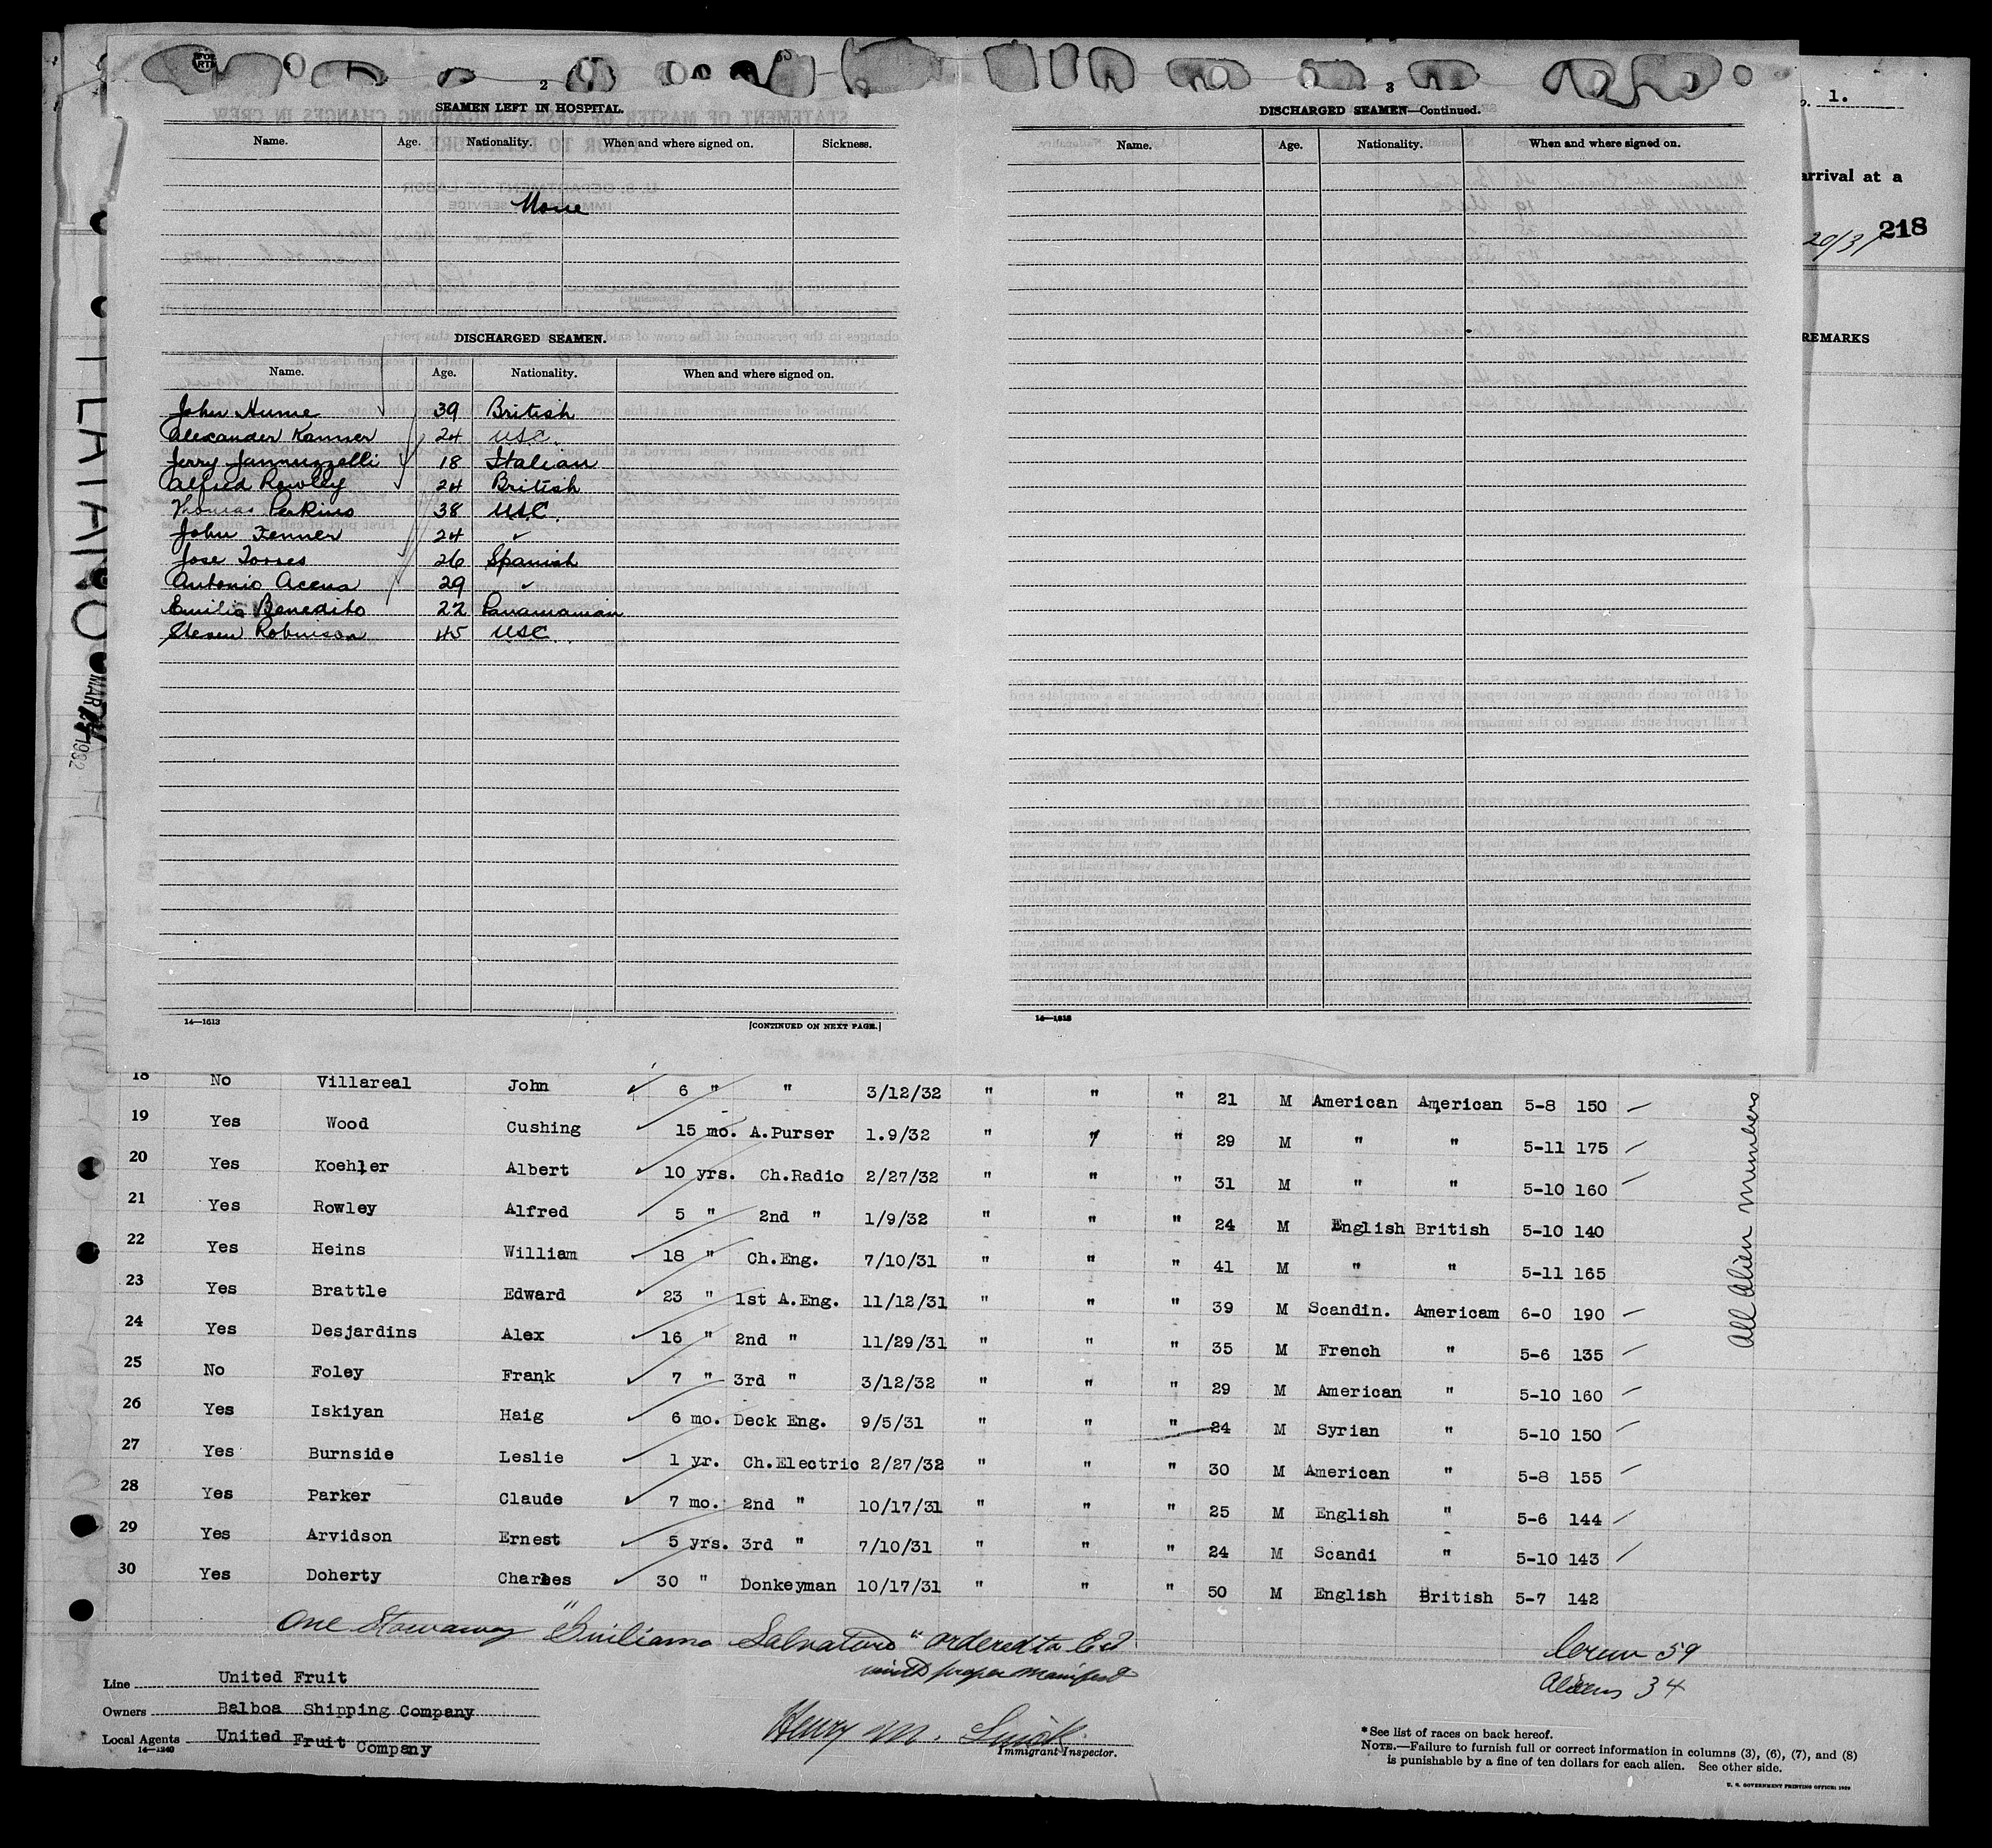 2
SEAMEN LEFT IN HOSPITAL.
Name. Age. Nationality. When and where signed on. Sickness.
None
DISCHARGED SEAMEN.
Name. Age. Nationality. When and where signed on.
John Hume 39 British
Alexander Kanner 24 USC.
Jerry Jannuzzelli 18 Italian
Alfred Rowley 24 British
Thomas Perkins 38 USC.
John Fenner 24 ✓
Jose Torres 26 Spanish
Antonio Acena 29 ✓
Emilio Benedito 22 Panamanian
Steven Robinson 45 USC
14—1613 [CONTINUED ON NEXT PAGE.]
3
DISCHARGED SEAMEN—Continued.
Name. Age. Nationality. When and where signed on.
14—1613
1.
arrival at a
20/31 218
REMARKS
MAR 24 1932
18 No Villareal John ✓ 6 " " 3/12/32 " " " 21 M American American 5-8 150
19 Yes Wood Cushing 15 mo. A.Purser 1.9/32 " " " 29 M " " 5-11 175
20 Yes Koehler Albert ✓ 10 yrs. Ch.Radio 2/27/32 " " " 31 M " " 5-10 160
21 Yes Rowley Alfred 5 " 2nd " 1/9/32 " " " 24 M English British 5-10 140
22 Yes Heins William ✓ 18 " Ch.Eng. 7/10/31 " " " 41 M " " 5-11 165
23 Yes Brattle Edward ✓ 23 " 1st A.Eng. 11/12/31 " " " 39 M Scandin. Americam 6-0 190
24 Yes Desjardins Alex ✓ 16 " 2nd " 11/29/31 " " " 35 M French " 5-6 135
25 No Foley Frank ✓ 7 " 3rd " 3/12/32 " " " 29 M American " 5-10 160
26 Yes Iskiyan Haig ✓ 6 mo. Deck Eng. 9/5/31 " " " 24 M Syrian " 5-10 150
27 Yes Burnside Leslie ✓ 1 yr. Ch.Electric 2/27/32 " " " 30 M American " 5-8 155
28 Yes Parker Claude ✓ 7 mo. 2nd " 10/17/31 " " " 25 M English " 5-6 144
29 Yes Arvidson Ernest ✓ 5 yrs. 3rd " 7/10/31 " " " 24 M Scandi " 5-10 143
30 Yes Doherty Charles ✓ 30 " Donkeyman 10/17/31 " " " 50 M English British 5-7 142
All Alien members
One Stowaway "Guiliamo Salvaturo" ordered to
with proper manifest
Crew 59
Aliens 34
Line United Fruit
Owners Balboa Shipping Company
Local Agents United Fruit Company
14—1240
Henry M.
Immigrant Inspector.
*See list of races on back hereof.
NOTE.—Failure to furnish full or correct information in columns (3), (6), (7), and (8)
is punishable by a fine of ten dollars for each alien. See other side.
U. S. GOVERNMENT PRINTING OFFICE: 1929